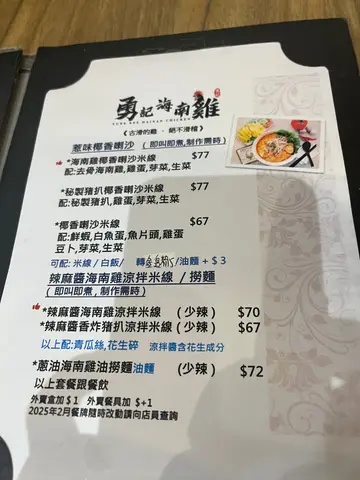 勇記海南雞
YUNG KEE HAINAN CHICKEN
《古滑的雞 . 絕不滑檔》
惹味椰香喇沙 (即叫即煮,制作需時)
*海南雞椰香喇沙米線 $77
配:去骨海南雞,雞蛋,芽菜,生菜
*秘製豬扒椰香喇沙米線 $77
配:秘製豬扒,雞蛋,芽菜,生菜
*椰香喇沙米線 $67
配:鮮蝦,白魚蛋,魚片頭,雞蛋
豆卜,芽菜,生菜
可配: 米線 / 白飯/ 轉 /油麵 + $ 3
辣麻醬海南雞涼拌米線 / 撈麵
(即叫即煮, 制作需時)
*辣麻醬海南雞涼拌米線 (少辣) $70
*辣麻醬香炸豬扒涼拌米線 (少辣) $67
以上配:青瓜絲,花生碎 涼拌醬含花生成分
*蔥油海南雞油撈麵油麵 (少辣) $72
以上套餐跟餐飲
外賣盒加 $ 1 外賣餐具加 $+1
2025年2月餐牌隨時改動請向店員查詢